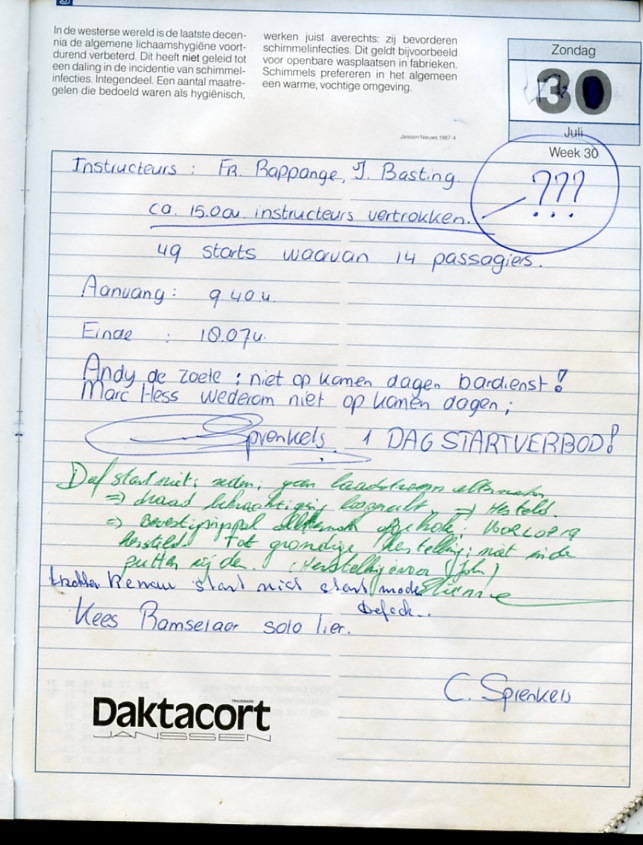 In de westerse wereld is de laatste decen-
nia de algemene lichaamshygiëne voort-
durend verbeterd. Dit heeft niet geleid tot
een daling in de incidentie van schimmel-
infecties. Integendeel. Een aantal maatre-
gelen die bedoeld waren als hygiënisch,
werken juist averechts: zij bevorderen
schimmelinfecties. Dit geldt bijvoorbeeld
voor openbare wasplaatsen in fabrieken.
Schimmels prefereren in het algemeen
een warme, vochtige omgeving.
Janssen Nieuws 1987-4
Zondag
30
Juli
Week 30
Instructeurs : Fr. Bappange, J. Basting.
???
ca. 15.00u. instructeurs vertrokken.
49 starts waarvan 14 passagiers.
Aanvang : 9.40 u.
Einde : 18.07u.
Andy de Zoete : niet op komen dagen bardienst!
Marc Hess wederom niet op komen dagen;
Sprenkels 1 DAG STARTVERBOD!
Daf start niet; reden; geen laadstroom
=> draad => Hersteld.
=> VOORLOPIG
hersteld tot grondige herstelling; niet in de
putten rijden. (John)
Renau start niet
Defect..
Kees Ramselaar solo lier.
C. Sprenkels
TRADEMARK
Daktacort
JANSSEN